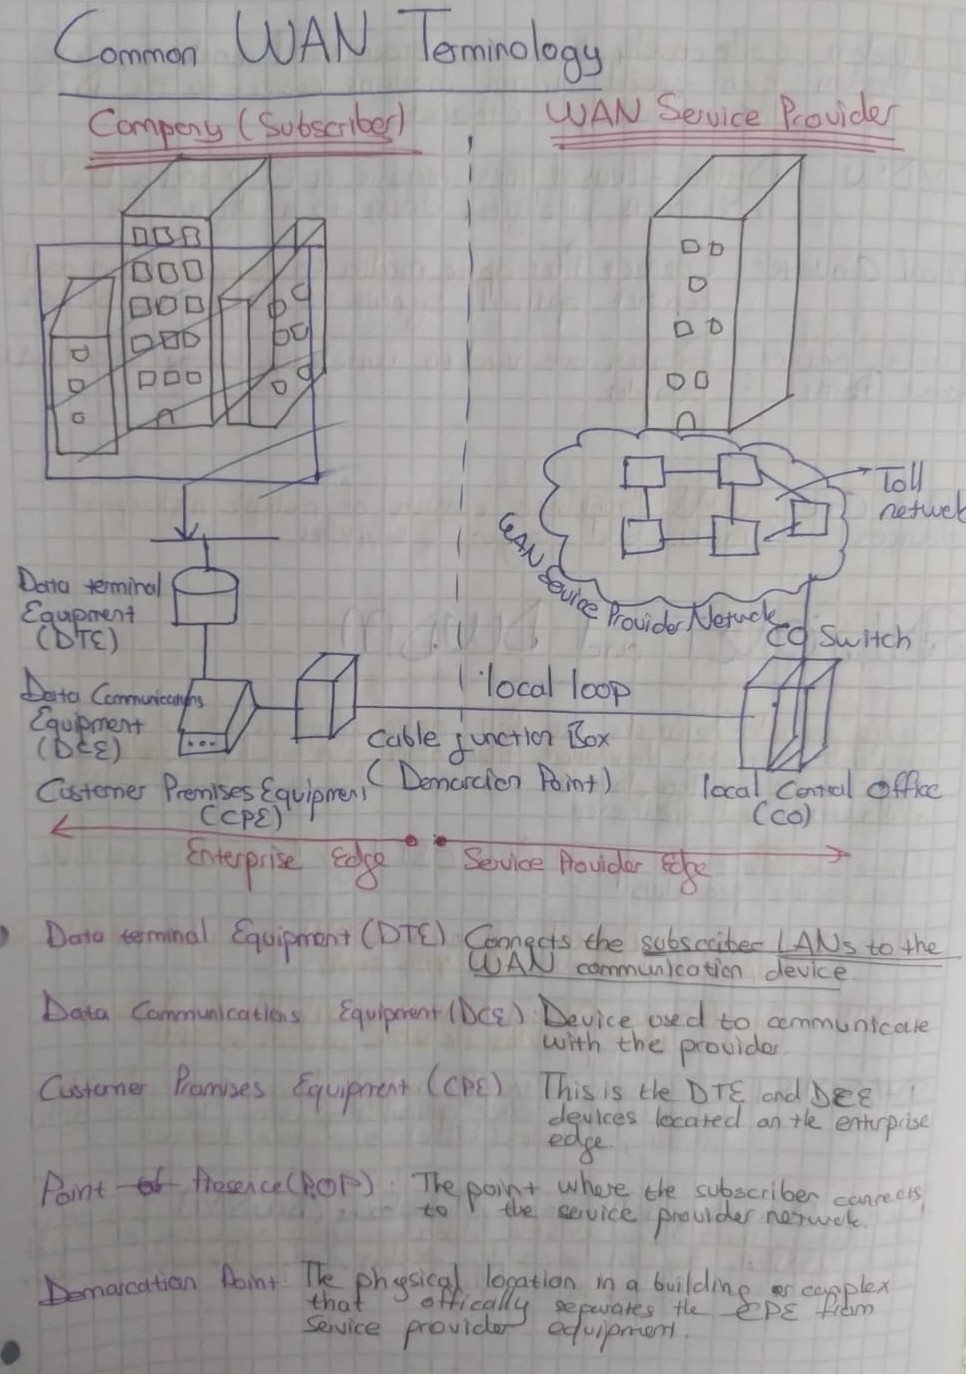 Common WAN Terminology
Compeny (Subscriber)
WAN Service Provider
Toll
netwek
WAN Service Provider Netwck
CO Switch
Data terminal
Equipment
(DTE)
local loop
Data Communications
Equipment
(DCE)
Cable junction Box
(Demarcion Point)
Customer Premises Equipment
(CPE)
local Central Office
(CO)
Enterprise Edge
Service Provider Edge
Data terminal Equipment (DTE) Connects the subscriber LANs to the
WAN communication device.
Data Communications Equipment (DCE) Device used to communicate
with the provider.
Customer Premises Equipment (CPE) This is the DTE and DCE
devices located on the enterprise
edge.
Point of Presence (POP). The point where the subscriber connects
to the service provider netwek.
Demarcation Point: The physical location in a building or complex
that offically seperates the CPE from
service provider equipment.